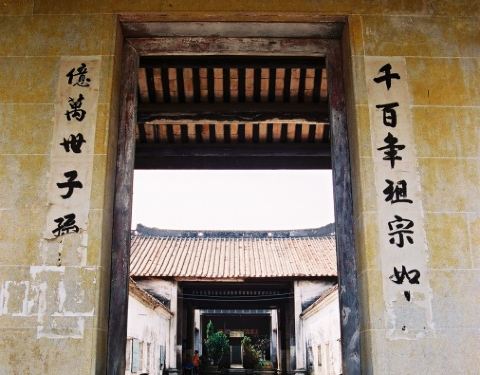 千百年祖宗如
億萬世子孫